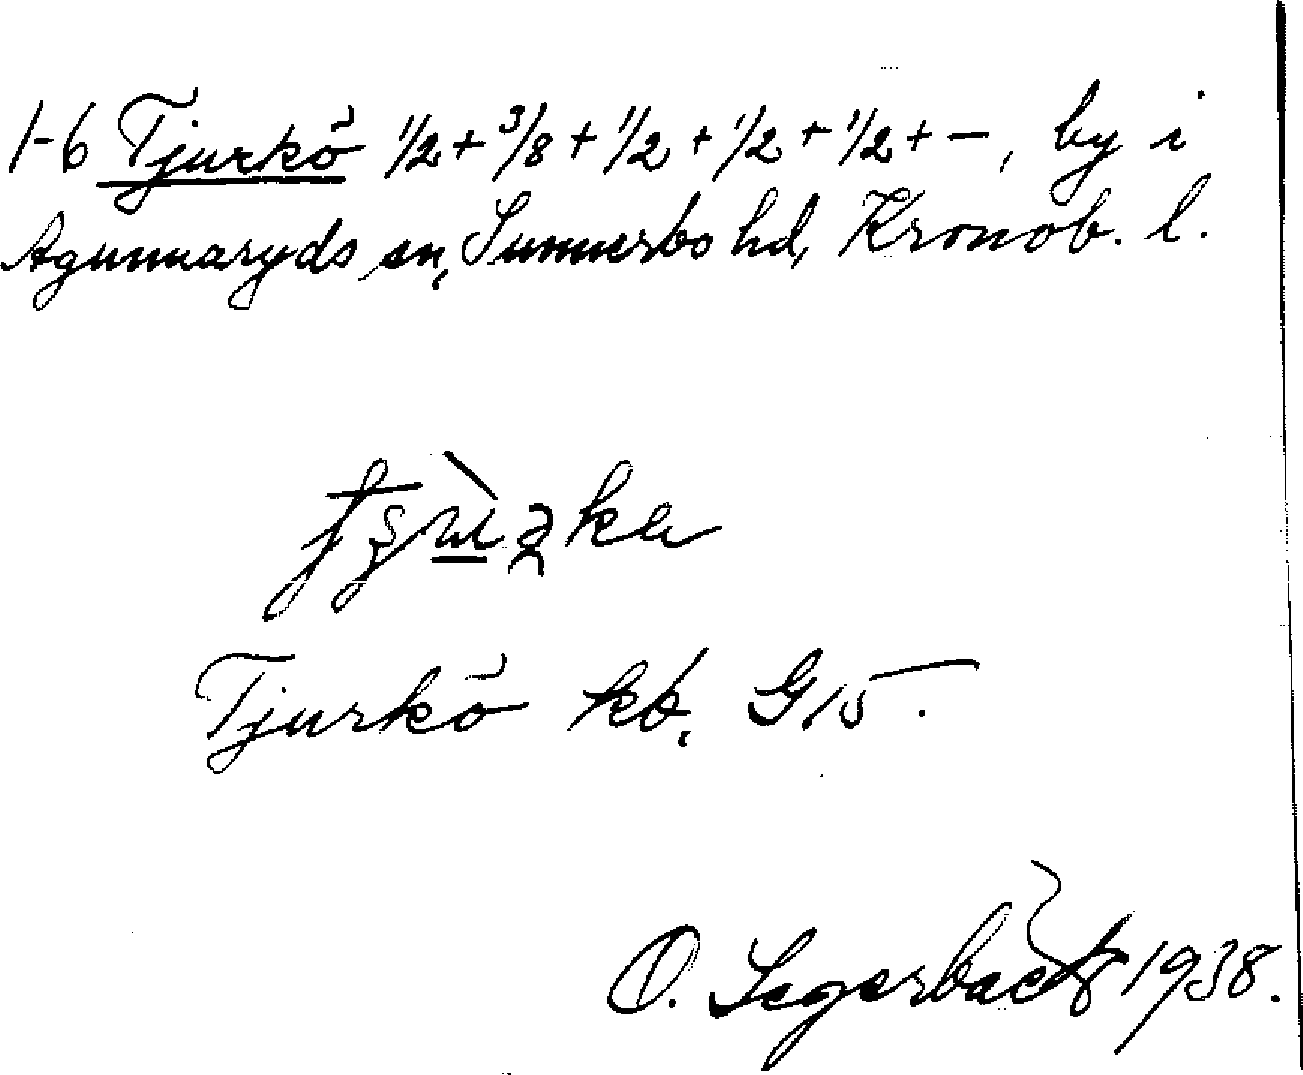 1-6 Tjurkö 1/2 + 3/8 + 1/2 + 1/2 + 1/2 + -, by i
Agunnaryds sn, Sunnerbo hd, Kronob. l.
Tjurkö kb. G15.
O. Segerbäck 1938.